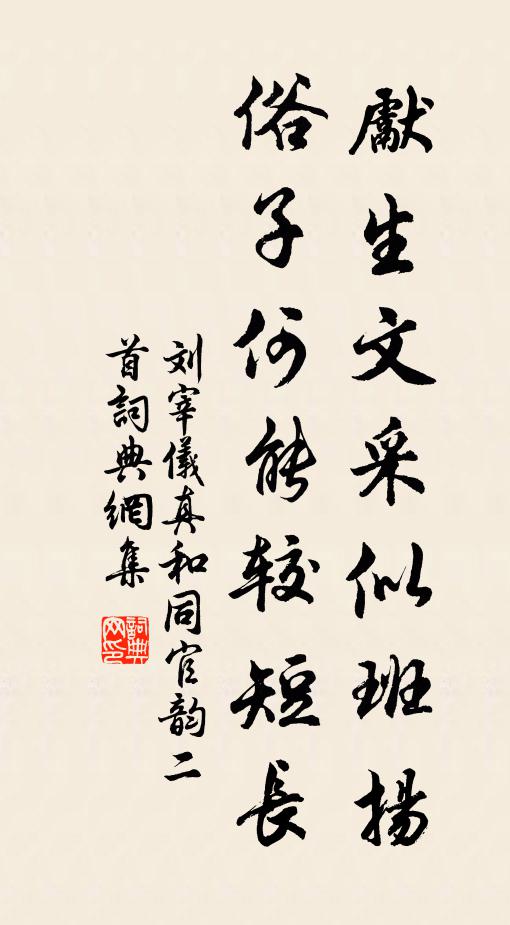 獻生文采似班揚
俗子何能較短長
刘宰儀真和同官韵二
首詞典網集
詞典网印